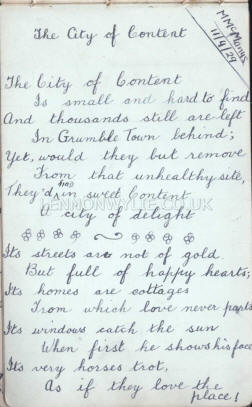 M McManus
11/9/29
The City of Content
The City of Content
Is small and hard to find
And thousands still are left
In Grumble Town behind;
Yet, would they but remove
From that unhealthy site,
They'd find in sweet Content
A city of delight
LENNONWYLIE.CO.UK
Its streets are not of gold
But full of happy hearts;
Its homes are cottages
From which love never parts
Its windows catch the sun
When first he shows his face
Its very horses trot,
As if they love the
place!